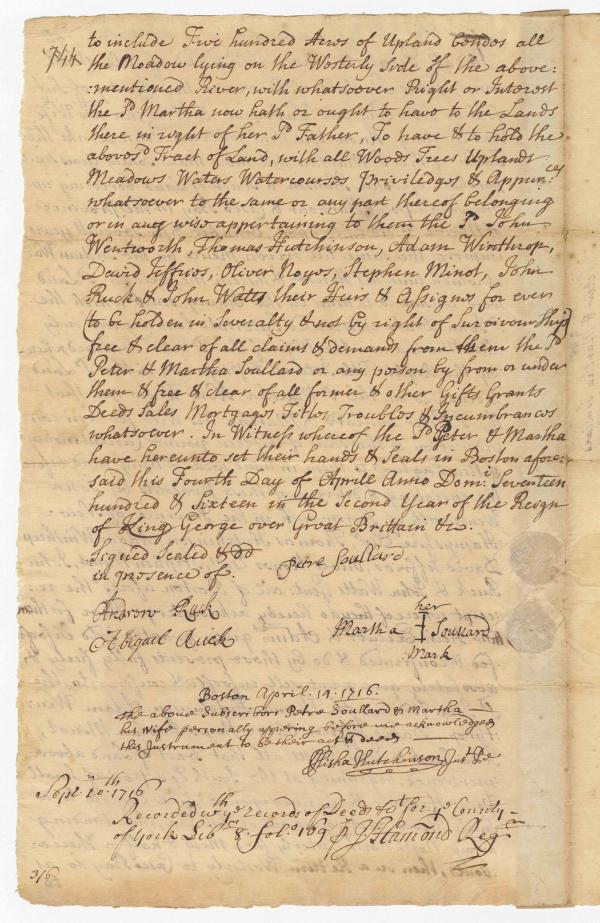 7/14
to include Five hundred Acres of Upland besides all
the Meadow lying on the Westerly Side of the above=
=mentioned River, with whatsoever Right or Interest
the sd Martha now hath or ought to have to the Lands
there in right of her sd Father, To have & to hold the
abovesd Tract of Land, with all Woods Trees Uplands
Meadows Waters Watercourses Priviledges & Appurces
whatsoever to the same or any part thereof belonging
or in any wise appertaining to them the sd John
Wentworth, Thomas Hutchinson, Adam Winthrop,
David Jeffries, Oliver Noyes, Stephen Minot, John
Ruck & John Watts their Heirs & Assignes for ever
(to be holden in Severalty & not by right of Survivourship)
free & clear of all claims & demands from them the sd
Peter & Martha Soullard or any person by from or under
them & free & clear of all former & other Gifts Grants
Deeds Sales Mortgages Titles Troubles & Incumbrances
whatsoever. In Witness whereof the sd Peter & Martha
have hereunto set their hands & Seals in Boston afore=
said this Fourth Day of Aprill Anno Domi Seventeen
hundred & Sixteen in the Second Year of the Reign
of King George over Great Brittain &c.
Signed Sealed & dd
in presence of.
Petre Soullard
Andrew Ruck
Abigail Ruck
her
Martha I Soullard
Mark
Boston April. 14. 1716.
the above Subscribors Petre Soullard & Martha
his wife personally appering before me acknowledged
this Instrament to be their act & deed
Elisha Hutchinson Just Pe
Septr 20th. 1716
Recorded wth ye records of Deeds &c for ye County
of York Libr 8. folo 169 P J Hamond Regr
3/6